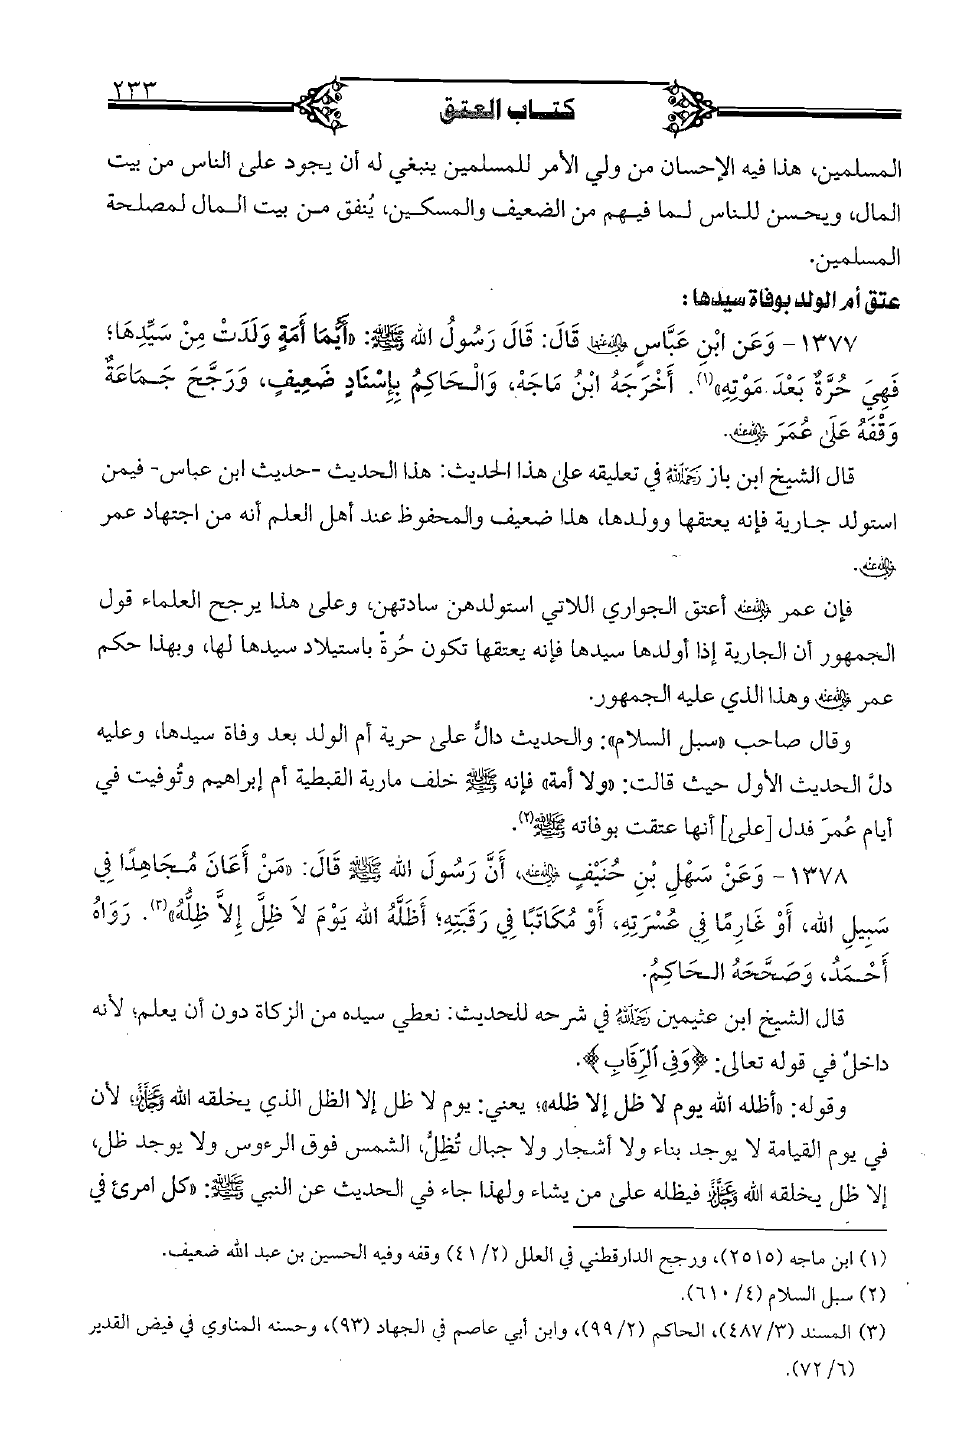 ٢٣٣
كتاب العتق
المسلمين، هذا فيه الإحسان من ولي الأمر للمسلمين ينبغي له أن يجود على الناس من بيت
المال، ويحسن للناس لما فيهم من الضعيف والمسكين، يُنفق من بيت المال لمصلحة
المسلمين.
عتق أم الولد بوفاة سيدها:
١٣٧٧ - وَعَن ابْنِ عَبَّاسٍ رضي الله عنهما قَالَ: قَالَ رَسُولُ الله ﷺ: «أَيُّمَا أَمَةٍ وَلَدَتْ مِنْ سَيِّدِهَا؛
فَهِيَ حُرَّةٌ بَعْدَ مَوْتِهِ»(١). أَخْرَجَهُ ابْنُ مَاجَهْ، وَالْحَاكِمُ بِإِسْنَادٍ ضَعِيفٍ، وَرَجَّحَ جَمَاعَةٌ
وَقْفَهُ عَلَى عُمَرَ رضي الله عنه.
قال الشيخ ابن باز رحمه الله في تعليقه على هذا الحديث: هذا الحديث -حديث ابن عباس- فيمن
استولد جارية فإنه يعتقها وولدها، هذا ضعيف والمحفوظ عند أهل العلم أنه من اجتهاد عمر
رضي الله عنه.
فإن عمر رضي الله عنه أعتق الجواري اللاتي استولدهن سادتهن، وعلى هذا يرجح العلماء قول
الجمهور أن الجارية إذا أولدها سيدها فإنه يعتقها تكون حُرةً باستيلاد سيدها لها، وبهذا حكم
عمر رضي الله عنه وهذا الذي عليه الجمهور.
وقال صاحب «سبل السلام»: والحديث دالٌ على حرية أم الولد بعد وفاة سيدها، وعليه
دلَّ الحديث الأول حيث قالت: «ولا أمة» فإنه ﷺ خلف مارية القبطية أم إبراهيم وتُوفيت في
أيام عُمرَ فدل [على] أنها عتقت بوفاته ﷺ(٢).
١٣٧٨ - وَعَنْ سَهْلِ بْنِ حُنَيْفٍ رضي الله عنه، أَنَّ رَسُولَ الله ﷺ قَالَ: «مَنْ أَعَانَ مُجَاهِدًا فِي
سَبِيلِ الله، أَوْ غَارِمًا فِي عُسْرَتِهِ، أَوْ مُكَاتَبًا فِي رَقَبَتِهِ؛ أَظَلَّهُ الله يَوْمَ لَا ظِلَّ إِلاَّ ظِلُّهُ»(٣). رَوَاهُ
أَحْمَدُ، وَصَحَّحَهُ الْحَاكِمُ.
قال الشيخ ابن عثيمين رحمه الله في شرحه للحديث: نعطي سيده من الزكاة دون أن يعلم؛ لأنه
داخلٌ في قوله تعالى: ﴿وَفِي ٱلرِّقَابِ﴾.
وقوله: «أظله الله يوم لا ظل إلا ظله»؛ يعني: يوم لا ظل إلا الظل الذي يخلقه الله عز وجل؛ لأن
في يوم القيامة لا يوجد بناء ولا أشجار ولا جبال تُظِلُّ، الشمس فوق الرءوس ولا يوجد ظل،
إلا ظل يخلقه الله عز وجل فيظله على من يشاء ولهذا جاء في الحديث عن النبي ﷺ: «كل امرئ في
(١) ابن ماجه (٢٥١٥)، ورجح الدارقطني في العلل (٢/ ٤١) وقفه وفيه الحسين بن عبد الله ضعيف.
(٢) سبل السلام (٤/ ٦١٠).
(٣) المسند (٣/ ٤٨٧)، الحاكم (٢/ ٩٩)، وابن أبي عاصم في الجهاد (٩٣)، وحسنه المناوي في فيض القدير
(٦/ ٧٢).